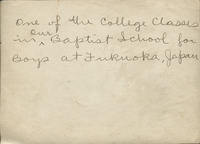 One of the College Classes
in our Baptist School for
Boys at Fukuoka, Japan